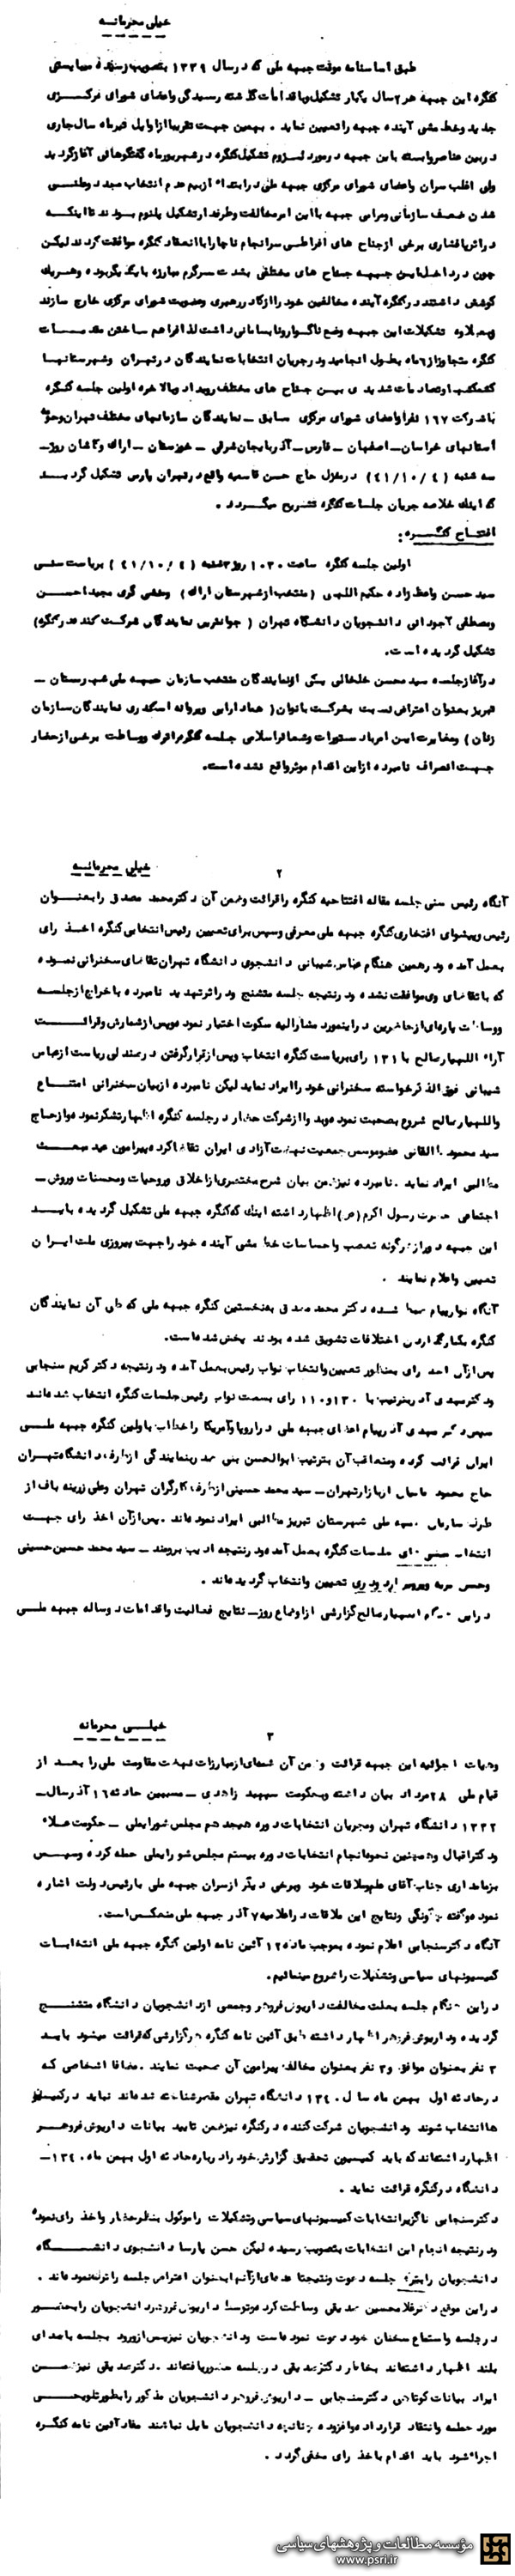 خیلی محرمانه
طبق اساسنامه موقت جبهه ملی که در سال ۱۳۳۹ بتصویب رسیده میبایستی
کنگره این جبهه هر ۲ سال یکبار تشکیل و باقدامات گذشته رسیدگی و اعضای شورای مرکزی
جدید و خط مشی آینده جبهه را تعیین نماید . بهمین جهت تقریبا از اوایل تیرماه سال جاری
در بین عناصر وابسته باین جبهه در مورد لزوم تشکیل کنگره در شهریورماه گفتگوهائی آغاز گردید
ولی اغلب سران و اعضای شورای مرکزی جبهه ملی در ابتداء از بیم عدم انتخاب مجدد و علنی
شدن ضعف سازمانی و مرامی جبهه با این امر مخالفت و طرفدار تشکیل پلنوم بودند تا اینکه
در اثر پافشاری برخی از جناح های افراطی سرانجام ناچارا با انعقاد کنگره موافقت کردند لیکن
چون در داخل این جبهه جناح های مختلفی بشدت سرگرم مبارزه با یکدیگر بوده و هریک
کوشش داشتند در کنگره آینده مخالفین خود را از کادر رهبری و عضویت شورای مرکزی خارج سازند
بعلاوه تشکیلات این جبهه وضع ناگوار و نابسامانی داشت لذا فراهم ساختن مقدمات
کنگره متجاوز از ۶ ماه بطول انجامید و در جریان انتخابات نمایندگان در تهران و شهرستانها
کشمکشها و تصادمات شدیدی بین جناح های مختلف رویداد و بالاخره اولین جلسه کنگره
با شرکت ۱۶۷ نفر اعضای شورای مرکزی سابق ـ نمایندگان سازمانهای مختلف تهران و حومه
استانهای خراسان ـ اصفهان ـ فارس ـ آذربایجان شرقی ـ خوزستان ـ اراک و کاشان روز ـ
سه شنبه ( ۴۱/۱۰/۴ ) در منزل حاج حسن قاسمیه واقع در تهران پارس تشکیل گردید
که اینک خلاصه جریان جلسات کنگره تشریح میگردد .
افتتاح کنگره :
اولین جلسه کنگره ساعت ۱۰۳۰ روز ۳شنبه ( ۴۱/۱۰/۴ ) بریاست سنی
سید حسن واعظ زاده حکیم اللهی ( منتخب از شهرستان اراک ) و منشی گری مجید احسن
و مصطفی آجودانی دانشجویان دانشگاه تهران ( جوانترین نمایندگان شرکت کننده در کنگره )
تشکیل گردیده است.
در آغاز جلسه سید محسن خلخالی یکی از نمایندگان منتخب سازمان جبهه ملی شهرستان ـ
تبریز بعنوان اعتراض نسبت بشرکت بانوان ( هما دارابی و پروانه اسکندری نمایندگان سازمان
زنان ) و مغایرت این امر با دستورات و شعائر اسلامی جلسه کنگره را ترک و وساطت برخی از حضار
جهت انصراف نامبرده از این اقدام موثر واقع نشده است.
خیلی محرمانه
۲
آنگاه رئیس سنی جلسه مقاله افتتاحیه کنگره را قرائت و ضمن آن دکتر محمد مصدق را بعنوان
رئیس و پیشوای افتخاری کنگره جبهه ملی معرفی و سپس برای تعیین رئیس انتخابی کنگره اخذ رای
بعمل آمده و در همین هنگام عباس شیبانی دانشجوی دانشگاه تهران تقاضای سخنرانی نموده
که با تقاضای وی موافقت نشده و در نتیجه جلسه متشنج و در اثر تهدید نامبرده باخراج از جلسه
و وساطت پاره‌ای از حاضرین در اینمورد مشارالیه سکوت اختیار نموده و پس از شمارش و قرائت
آراء اللهیار صالح با ۱۳۱ رای بریاست کنگره انتخاب و پس از قرار گرفتن در صندلی ریاست از عباس
شیبانی فوق الذکر خواسته سخنرانی خود را ایراد نماید لیکن نامبرده از بیان سخنرانی امتناع
و اللهیار صالح شروع بصحبت نموده و بدوا از شرکت حضار در جلسه کنگره اظهار تشکر نموده و از حاج
سید محمود طالقانی عضو موسس جمعیت نهضت آزادی ایران تقاضا کرده پیرامون عید مبعث
مطالبی ایراد نماید . نامبرده نیز ضمن بیان شرح مختصری از اخلاق و روحیات و محسنات و روش ـ
اجتماعی حضرت رسول اکرم (ص) اظهار داشته اینک که کنگره جبهه ملی تشکیل گردیده باید
این جبهه دور از هرگونه تعصب و احساسات خط مشی آینده خود را جهت پیروزی ملت ایران
تعیین و اعلام نمایند .
آنگاه نوار پیام ضبط شده دکتر محمد مصدق به نخستین کنگره جبهه ملی که طی آن نمایندگان
کنگره بکنار گذاردن اختلافات تشویق شده بودند پخش شده است.
پس از آن اخذ رای بمنظور تعیین و انتخاب نواب رئیس بعمل آمده و در نتیجه دکتر کریم سنجابی
و دکتر مهدی آذر بترتیب با ۱۳۰ و ۱۱۰ رای بسمت نواب رئیس جلسات کنگره انتخاب شده‌اند
سپس دکتر مهدی آذر پیام اعضای جبهه ملی در اروپا و آمریکا را خطاب باولین کنگره جبهه ملی
ایران قرائت کرده و متعاقب آن بترتیب ابوالحسن بنی صدر بنمایندگی از طرف دانشگاه تهران
حاج محمود مانیان از بازار تهران ـ سید محمد حسینی از طرف کارگران تهران و علی زرینه باف از
طرف سازمان جبهه ملی شهرستان تبریز مطالبی ایراد نموده‌اند . پس از آن اخذ رای جهت
انتخاب منشی های جلسات کنگره بعمل آمده و در نتیجه ادیب برومند ـ سید محمد حسین حسینی
و حسن و تعیین و انتخاب گردیده‌اند .
در این هنگام اللهیار صالح گزارشی از اوضاع روز ـ نتایج فعالیت و اقدامات دو ساله جبهه ملی
خیلی محرمانه
۳
و هیات اجرائیه این جبهه قرائت و ضمن آن شمه‌ای از مبارزات نهضت مقاومت ملی را بعد از
قیام ملی ۲۸ مرداد بیان داشته و بحکومت سپهبد زاهدی ـ مسببین حادثه ۱۶ آذر سال ـ
۱۳۳۲ دانشگاه تهران و جریان انتخابات دوره هیجدهم مجلس شورایملی ـ حکومت علاء
و دکتر اقبال و همچنین نحوه انجام انتخابات دوره بیستم مجلس شورایملی حمله کرده و سپس
بزمامداری جناب آقای علم و ملاقات خود و برخی دیگر از سران جبهه ملی با رئیس دولت اشاره
نموده و گفته چگونگی و نتایج این ملاقات در اعلامیه ۷ آذر جبهه ملی منعکس است.
آنگاه دکتر سنجابی اعلام نموده بموجب ماده ۱۲ آئین نامه اولین کنگره جبهه ملی انتخابات
کمیسیونهای سیاسی و تشکیلات را شروع مینمائیم.
در این هنگام جلسه بعلت مخالفت داریوش فروهر و جمعی از دانشجویان دانشگاه متشنج
گردیده و داریوش فروهر اظهار داشته طبق آئین نامه کنگره هر گزارشی که قرائت میشود باید
۳ نفر بعنوان موافق و ۳ نفر بعنوان مخالف پیرامون آن صحبت نمایند . مضافا اشخاصی که
در حادثه اول بهمن ماه سال ۱۳۴۰ دانشگاه تهران مقصر شناخته شده‌اند نباید در کمیسیون
ها انتخاب شوند و دانشجویان شرکت کننده در کنگره نیز ضمن تایید بیانات داریوش فروهر
اظهار داشته‌اند که باید کمیسیون تحقیق گزارش خود را درباره حادثه اول بهمن ماه ۱۳۴۰ ـ
دانشگاه در کنگره قرائت نماید .
دکتر سنجابی ناگزیر انتخابات کمیسیونهای سیاسی و تشکیلات را موکول بنظر حضار و اخذ رای نموده
و در نتیجه انجام این انتخابات بتصویب رسیده لیکن حسن پارسا دانشجوی دانشگاه
دانشجویان را بترک جلسه دعوت و نتیجتا عده‌ای از آنها بعنوان اعتراض جلسه را ترک نموده‌اند .
در این موقع دکتر غلامحسین صدیقی وساطت کرده و توسط داریوش فروهر دانشجویان را بحضور
در جلسه و استماع سخنان خود دعوت نموده است و دانشجویان نیز پس از ورود بجلسه با صدای
بلند اظهار داشته‌اند بخاطر دکتر صدیقی در جلسه حضور یافته‌اند . دکتر صدیقی نیز ضمن
ایراد بیانات کوتاهی دکتر سنجابی ـ داریوش فروهر و دانشجویان مذکور را بطور تلویحی
مورد حمله و انتقاد قرار داده و افزوده چنانچه دانشجویان مایل نباشند مفاد آئین نامه کنگره
اجرا شود باید اقدام باخذ رای مخفی گردد .
مؤسسه مطالعات و پژوهشهای سیاسی
www.psri.ir